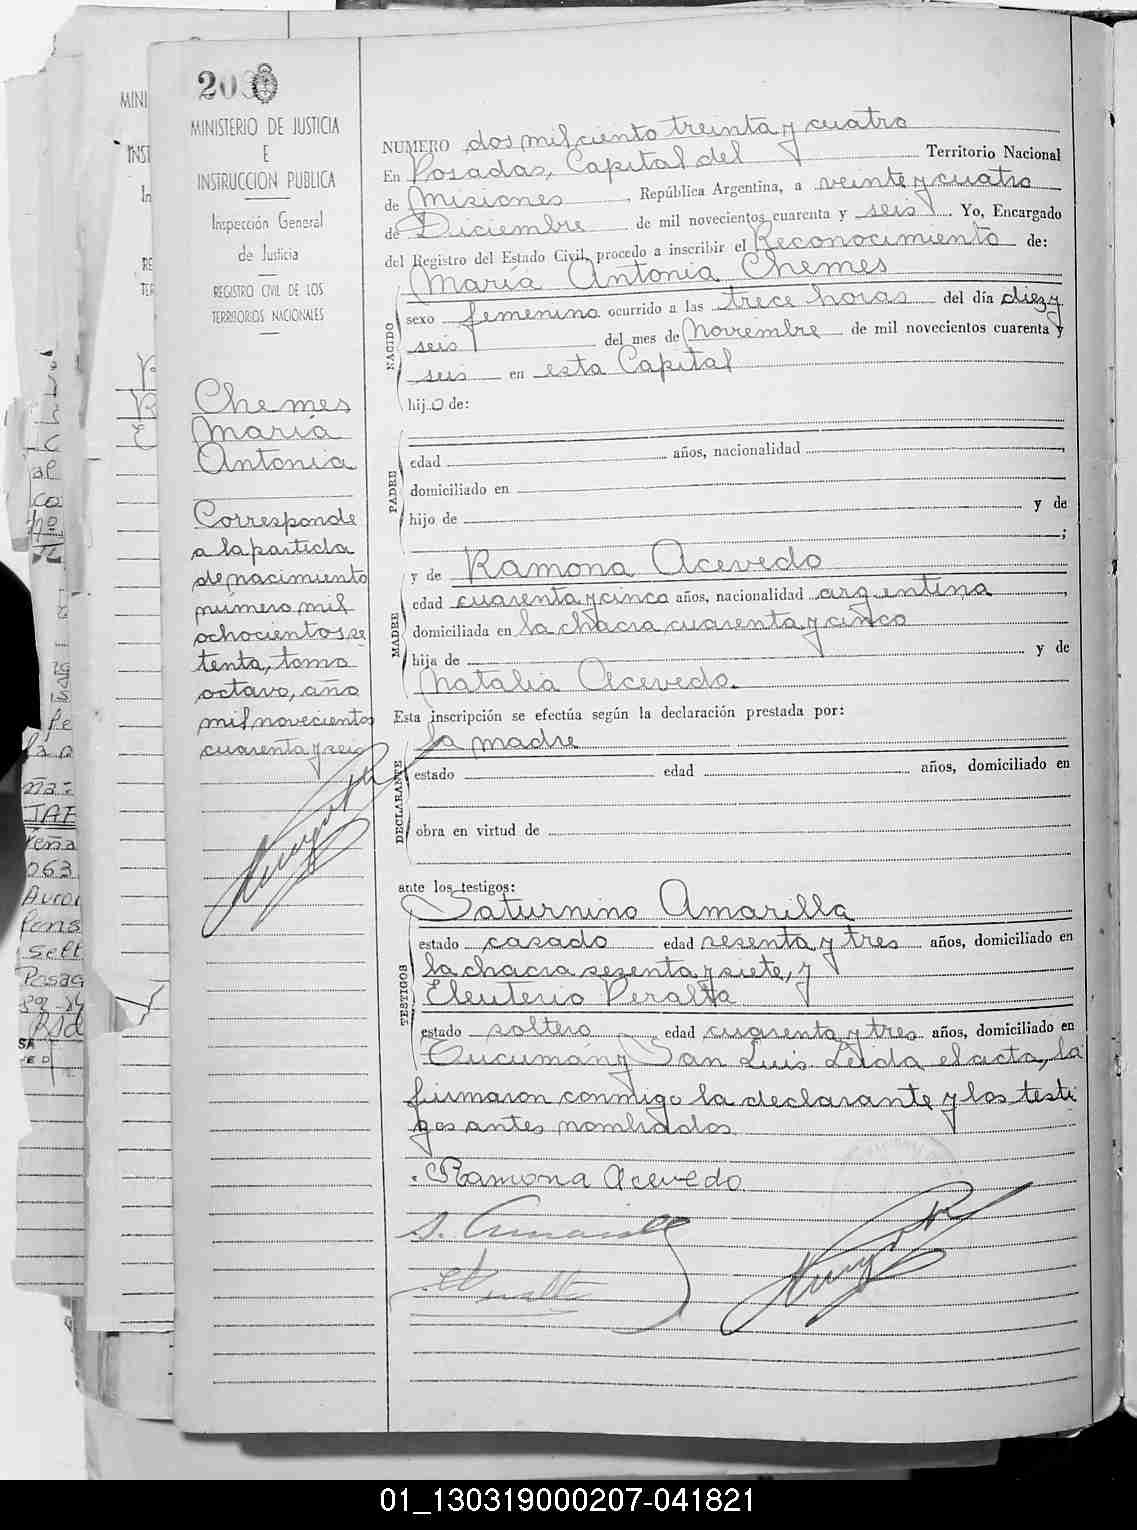 203
MINISTERIO DE JUSTICIA
E
INSTRUCCION PUBLICA
Inspección General
de Justicia
REGISTRO CIVIL DE LOS
TERRITORIOS NACIONALES
Chemes
María
Antonia
Corresponde
a la partida
de nacimiento
número mil
ochocientos se
tenta, tomo
octavo, año
mil novecientos
cuarenta y seis
NUMERO dos mil ciento treinta y cuatro
En Posadas, Capital del Territorio Nacional
de Misiones, República Argentina, a veinte y cuatro
de Diciembre de mil novecientos cuarenta y seis. Yo, Encargado
del Registro del Estado Civil, procedo a inscribir el Reconocimiento de:
María Antonia Chemes
NACIDO
sexo femenino ocurrido a las trece horas del día diez y
seis del mes de Noviembre de mil novecientos cuarenta y
seis en esta Capital
hijo de:
PADRE
edad años, nacionalidad
domiciliado en
hijo de y de
;
MADRE
y de Ramona Acevedo
edad cuarenta y cinco años, nacionalidad argentina,
domiciliada en la chacra cuarenta y cinco
hija de y de
Natalia Acevedo.
Esta inscripción se efectúa según la declaración prestada por:
DECLARANTE
la madre
estado edad años, domiciliado en
obra en virtud de
ante los testigos:
TESTIGOS
Saturnino Amarilla
estado casado edad sesenta y tres años, domiciliado en
la chacra sesenta y siete, y
Eleuterio Peralta
estado soltero edad cuarenta y tres años, domiciliado en
Tucumán y San Luis. Leída el acta, la
firmaron conmigo la declarante y los testi
gos antes nombrados
Ramona Acevedo
S. Amarilla
E Peralta
01_130319000207-041821